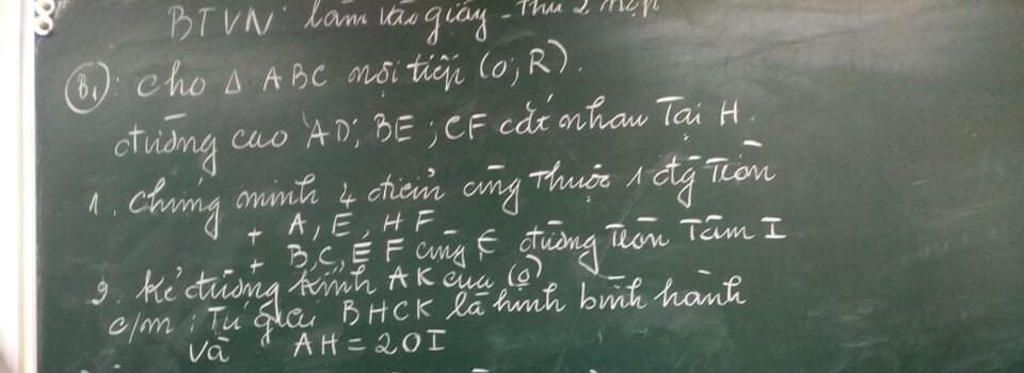 BTVN: làm vào giấy - Thứ 2 nộp
B₁): Cho Δ ABC nội tiếp (O, R).
đường cao AD; BE; CF cắt nhau Tại H.
1. Chứng minh 4 điểm cùng thuộc 1 đg Tròn
+ A, E, H F
+ B, C, E F cùng ∈ đường Tròn Tâm I
2. Kẻ đường kính AK của (O)
c/m: Tứ giác BHCK là hình bình hành
và AH = 2OI